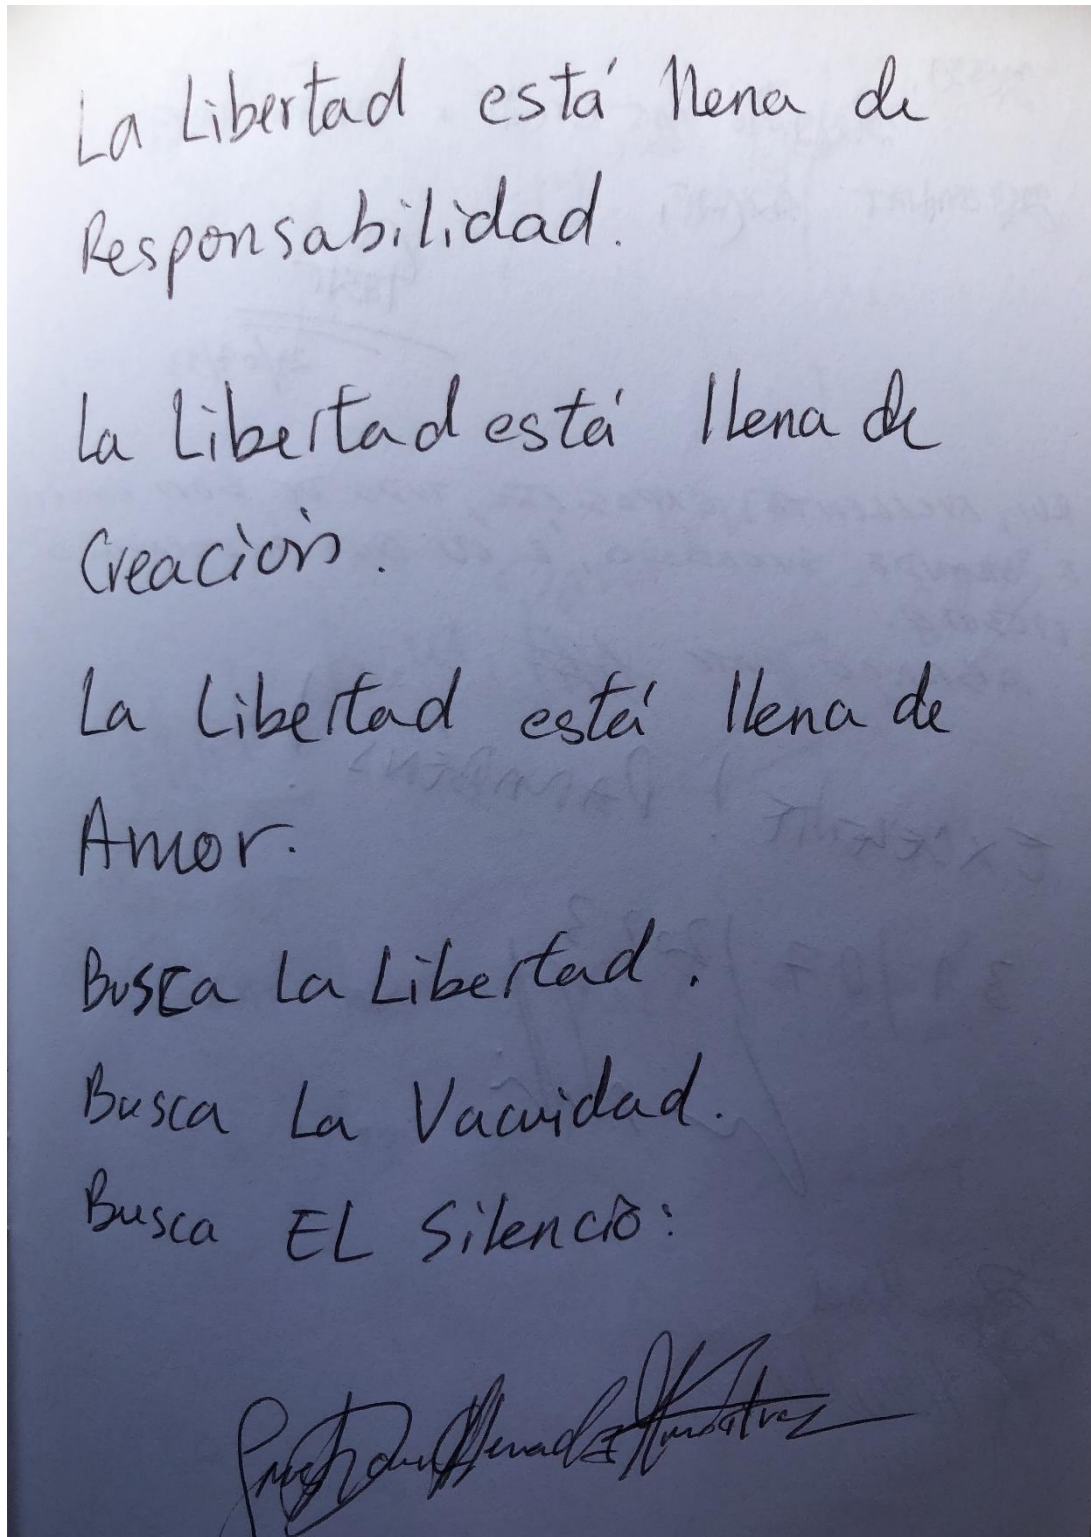 La Libertad está llena de
Responsabilidad.
La Libertad está llena de
Creación.
La Libertad está llena de
Amor.
Busca La Libertad.
Busca La Vacuidad.
Busca EL Silencio: